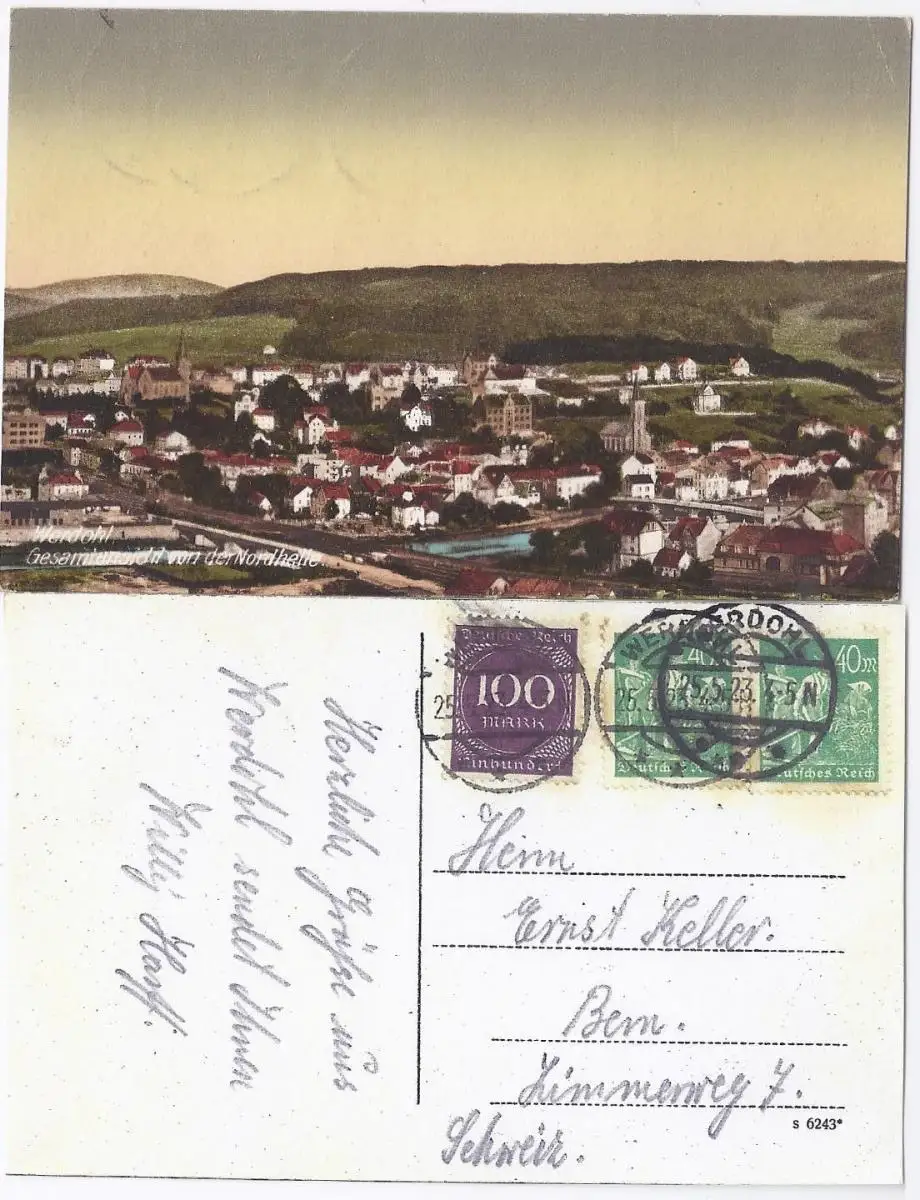 Werdohl.
Gesamtansicht von der Nordhelle.
Deutsches Reich
100
MARK
Einhundert
40
Deutsches Reich
40m
Deutsches Reich
WERDOHL
25.5.23. 4-5N
Herzliche Grüße aus
Werdohl sendet Ihnen
Willy
Herrn
Ernst Keller.
Bern.
Zimmerweg 7.
Schweiz.
S 6243*